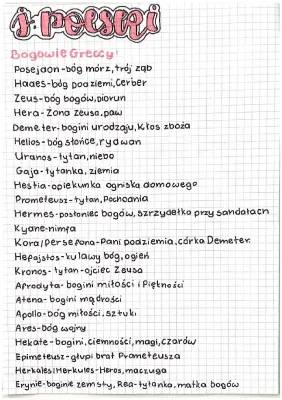 j. polski
Bogowie Greccy:
Posejdon-bóg mórz, trój ząb
Hades-bóg podziemi, Cerber
Zeus-bóg bogów, piorun
Hera-żona Zeusa, paw
Demeter-bogini urodzaju, Kłos zboża
Helios-bóg słońce, rydwan
Uranos-tytan, niebo
Gaja-tytanka, ziemia
Hestia-opiekunka ogniska domowego
Prometeusz-tytan, Pochodnia
Hermes-posłaniec bogów, szrzydełka przy sandałach
Kyane-nimfa
Kora/persefona-Pani podziemia, córka Demeter.
Hefajstos-kulawy bóg, ogień
Kronos-tytan-ojciec Zeusa
Afrodyta-bogini miłości i Piękności
Atena-bogini mądrości
Apollo-bóg miłości, sztuki
Ares-bóg wojny
Hekate-bogini, ciemności, magi, czarów
Epimeteusz-głupi brat Prometeusza
Herkales/Herkules-Heros, maczuga
Erynie-boginie zemsty, Rea-tytanka, matka bogów